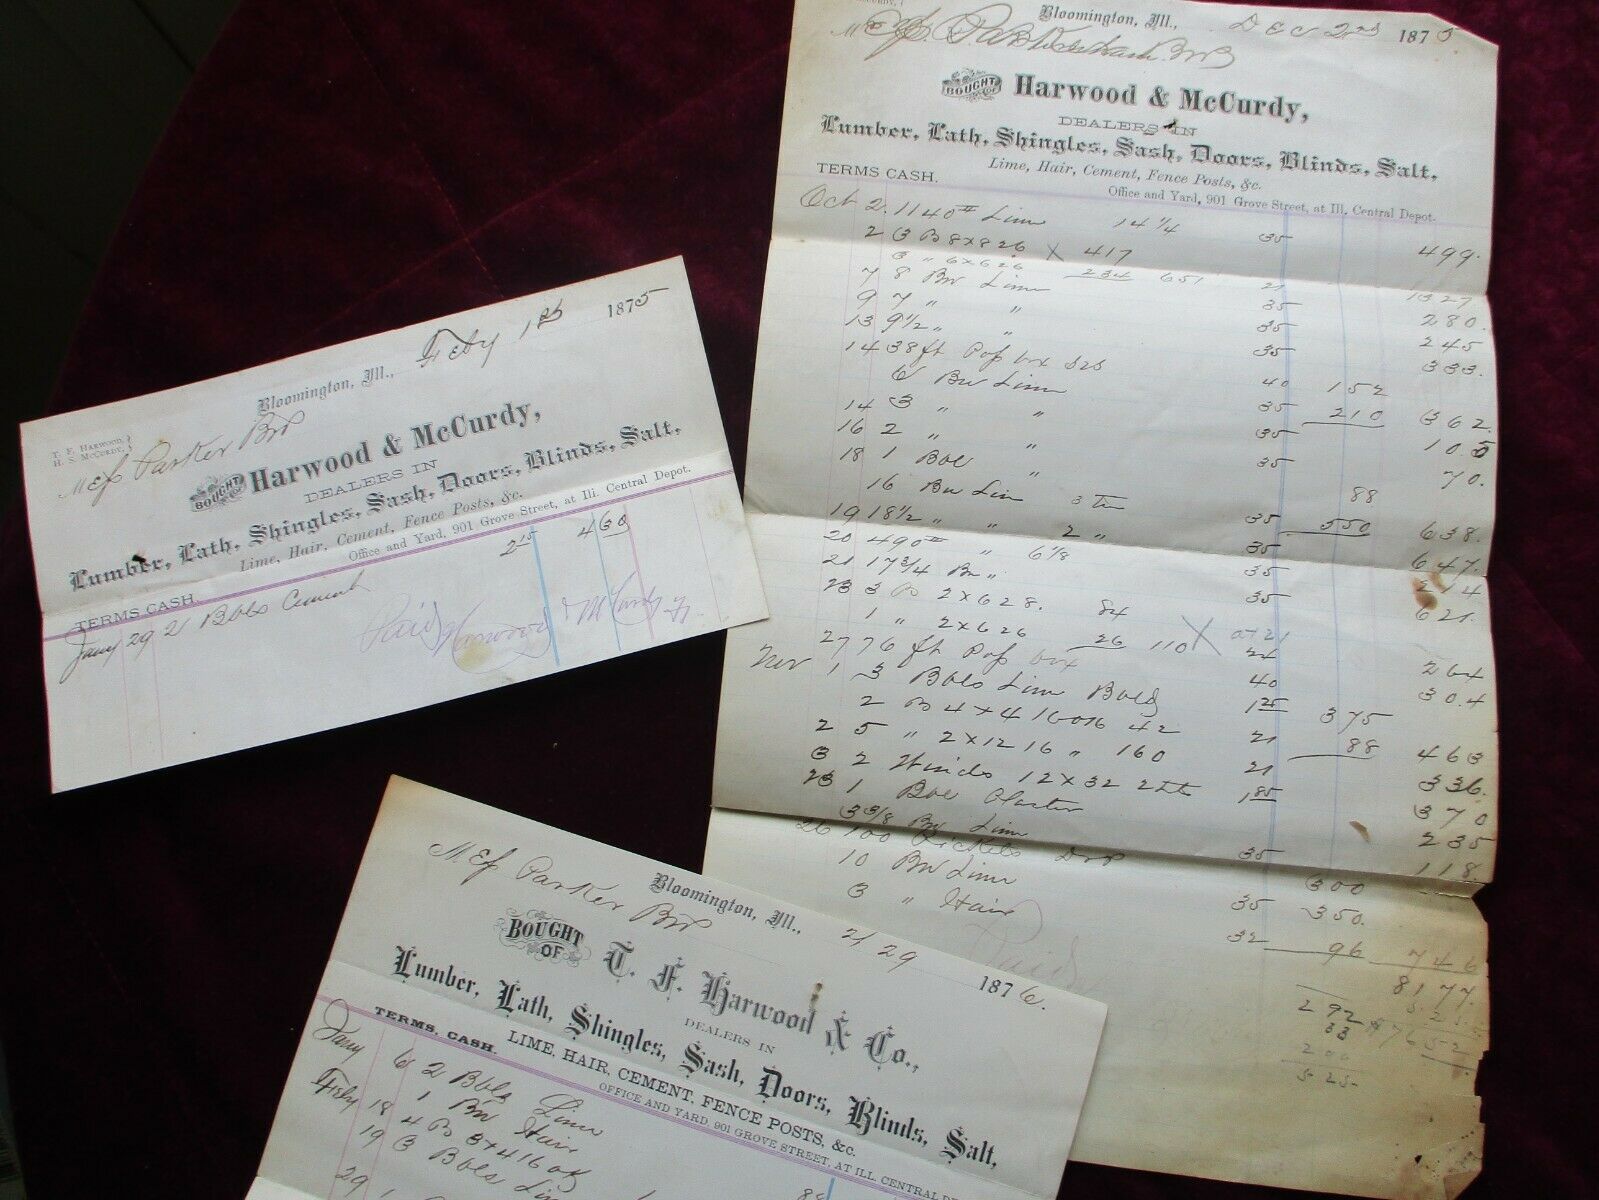 Bloomington, Ill., Feby 1st 1875
T. F. HARWOOD,
H. S. McCURDY,
Parker Bro
BOUGHT OF Harwood & McCurdy,
DEALERS IN
Lumber, Lath, Shingles, Sash, Doors, Blinds, Salt,
Lime, Hair, Cement, Fence Posts, &c.
Office and Yard, 901 Grove Street, at Ill. Central Depot.
TERMS CASH.
Jany 29 2 Bbls Cement 2 15 4 30
Paid Harwood & McCurdy
Bloomington, Ill., Dec 2nd 1875
Bro
BOUGHT OF Harwood & McCurdy,
DEALERS IN
Lumber, Lath, Shingles, Sash, Doors, Blinds, Salt,
Lime, Hair, Cement, Fence Posts, &c.
TERMS CASH. Office and Yard, 901 Grove Street, at Ill. Central Depot.
Oct 2 1140# Lime 14 1/4 35 499
2 3 8x8 26 X 417
3 " 6x6 26 234 651 21 1327
7 8 Bu Lime 35 280
9 7 " " 35 245
13 9 1/2 " " 35 333
14 38 ft Pop box 40 152
6 Bu Lime 35 210 362
14 3 " " 35 105
16 2 " " 35 70
18 1 Bbl " 88
16 Bu Lim 35 550 638
19 18 1/2 " " 2 " 35 647
20 490# " 6 1/8 35 214
21 17 3/4 Bu " 35 621
23 3 2x6 28 84
1 " 2x6 26 26 110 X 24 264
27 76 ft Pop box 40 304
Nov 1 3 Bbls Lime 1 25 375
2 4x4 16 42 21 88 463
2 5 " 2x12 16 " 160 21 336
3 2 Winds 12x32 2 Lts 1 85 370
23 1 Bbl Plaster 235
3 3/8 Bu Lime 35 118
26 100 Pickets 300
10 Bu Lime 35 350
3 " Hair 32 96 746
Paid 8177
292 525
33 $7652
200
525
Parker Bro
Bloomington, Ill., 2/29 1876
BOUGHT OF T. F. Harwood & Co.,
DEALERS IN
Lumber, Lath, Shingles, Sash, Doors, Blinds, Salt,
LIME, HAIR, CEMENT, FENCE POSTS, &c.
TERMS, CASH. OFFICE AND YARD, 901 GROVE STREET, AT ILL. CENTRAL
Jany 6 2 Bbls Lime
1 Bu Hair
Feby 18 4 3x4 16
19 3 Bbls Lim
29 1